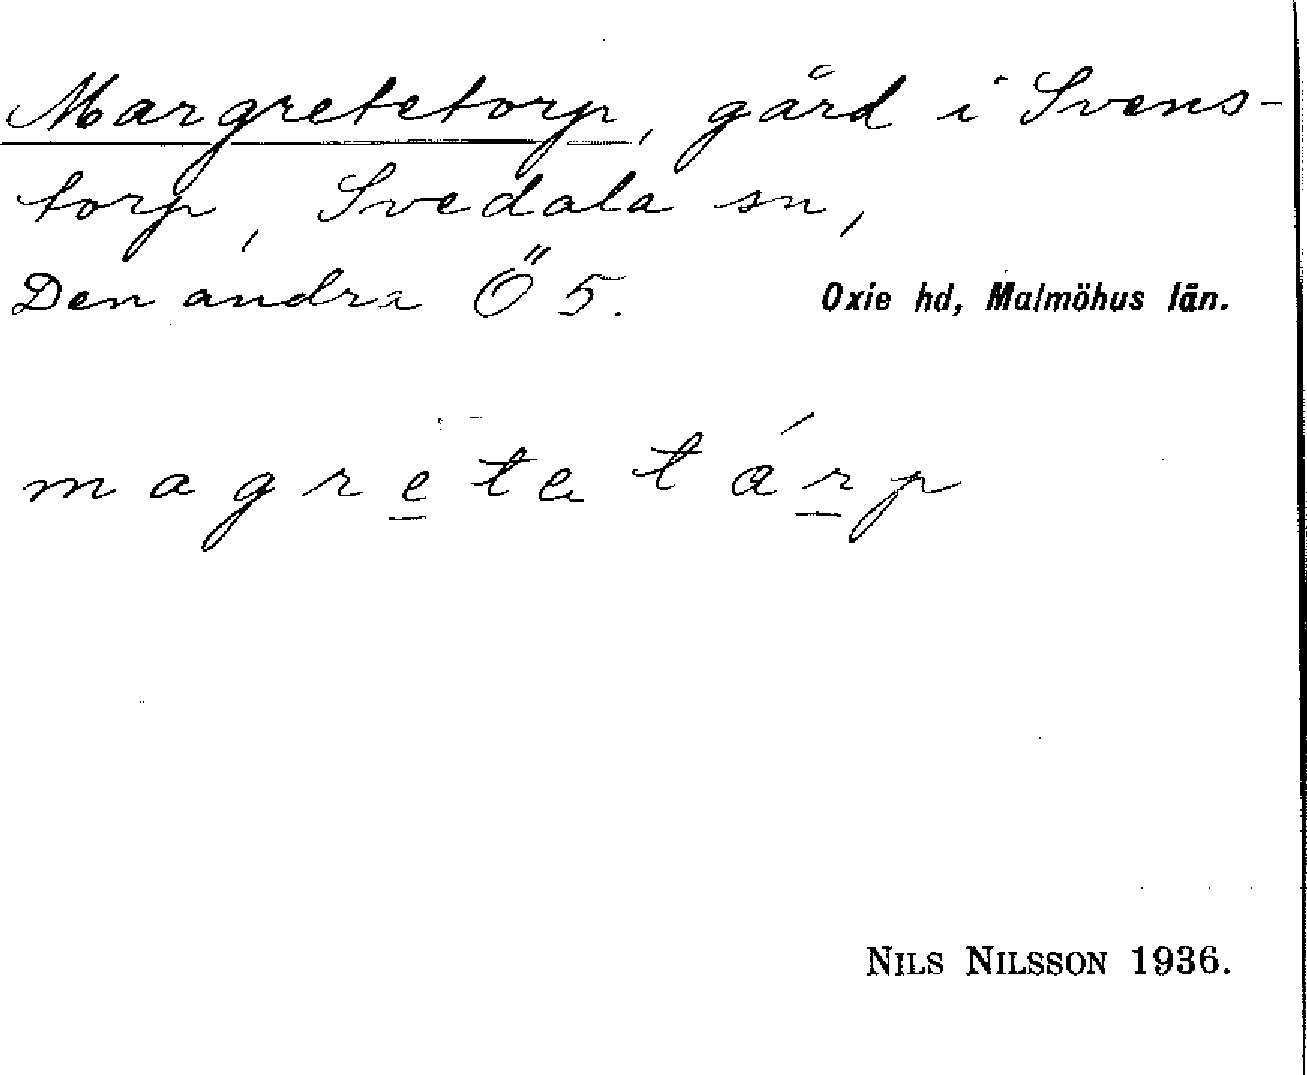 Margretetorp, gård i Svens-
torp, Svedala sn,
Den andra Ö 5. Oxie hd, Malmöhus län.
magre̲ta tár̲p
NILS NILSSON 1936.